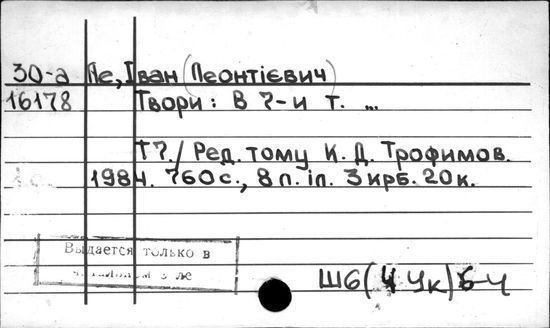 30-а Ле, Іван (Леонтієвич)
16178 Твори: В 7-и т. ...
Т7./ Ред. тому К. Д. Трофимов.
1984. 760 с., 8 л. іл. 3 крб. 20 к.
Выдается только в
Ш6(4 Ук)6-4